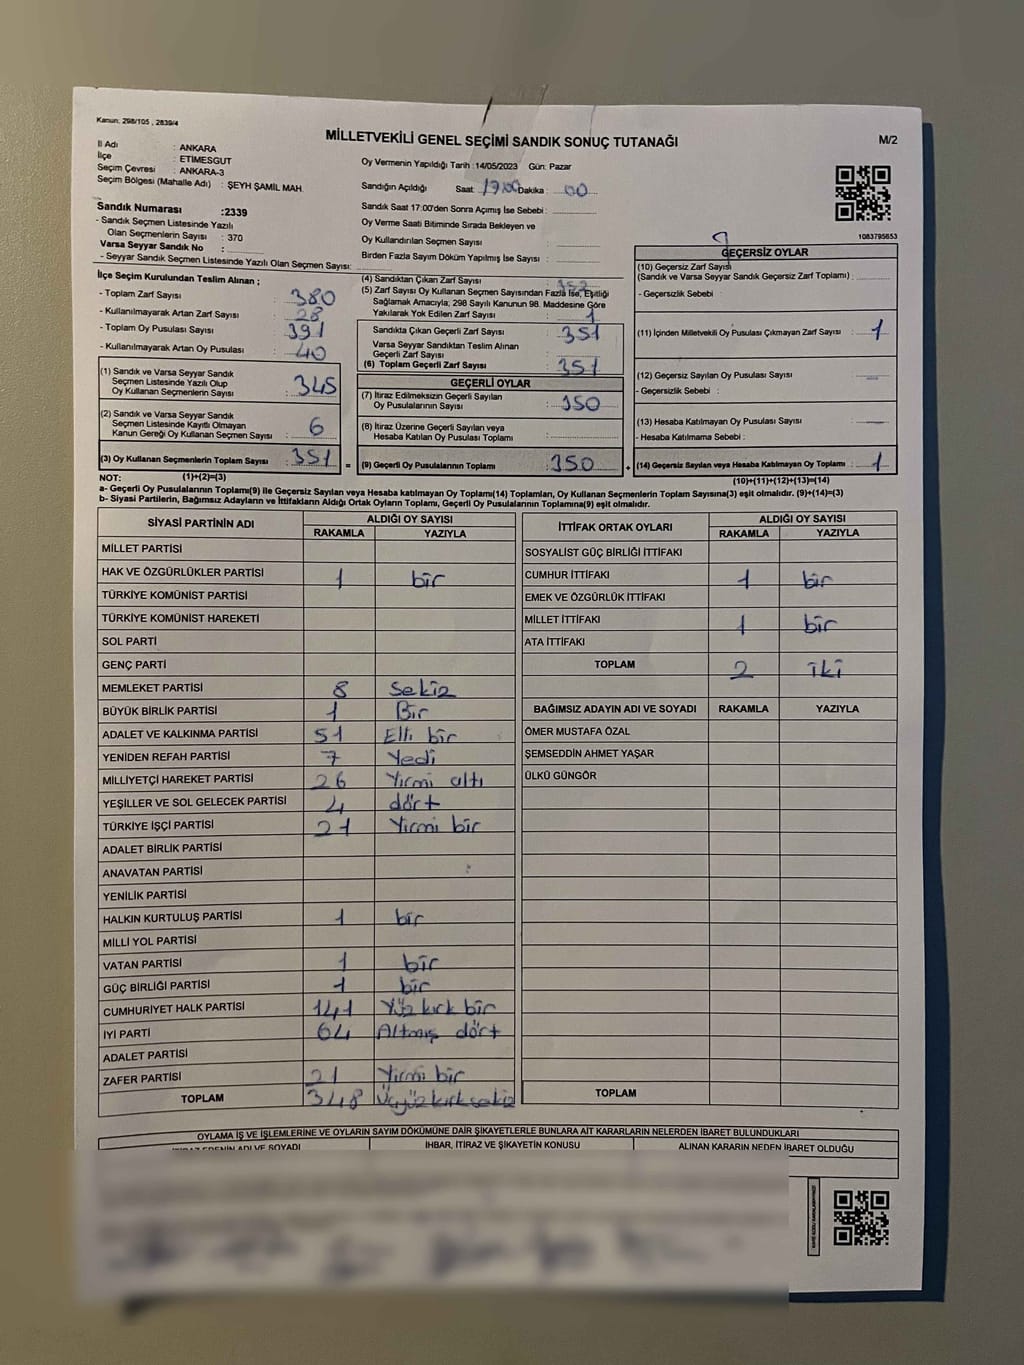 Kanun: 298/105 , 2839/4
MİLLETVEKİLİ GENEL SEÇİMİ SANDIK SONUÇ TUTANAĞI
M/2
İl Adı : ANKARA
İlçe : ETİMESGUT
Seçim Çevresi : ANKARA-3
Seçim Bölgesi (Mahalle Adı) : ŞEYH ŞAMİL MAH.
Oy Vermenin Yapıldığı Tarih :14/05/2023 Gün: Pazar
Sandığın Açıldığı Saat: 17:00 Dakika : 00
Sandık Saat 17:00'den Sonra Açılmış İse Sebebi :
Oy Verme Saati Bitiminde Sırada Bekleyen ve
Oy Kullandırılan Seçmen Sayısı :
Birden Fazla Sayım Döküm Yapılmış İse Sayısı :
1083795653
Sandık Numarası :2339
- Sandık Seçmen Listesinde Yazılı
Olan Seçmenlerin Sayısı : 370
Varsa Seyyar Sandık No :
- Seyyar Sandık Seçmen Listesinde Yazılı Olan Seçmen Sayısı:
İlçe Seçim Kurulundan Teslim Alınan ;
- Toplam Zarf Sayısı : 380
- Kullanılmayarak Artan Zarf Sayısı : 28
- Toplam Oy Pusulası Sayısı : 391
- Kullanılmayarak Artan Oy Pusulası : 40
(1) Sandık ve Varsa Seyyar Sandık
Seçmen Listesinde Yazılı Olup
Oy Kullanan Seçmenlerin Sayısı : 345
(2) Sandık ve Varsa Seyyar Sandık
Seçmen Listesinde Kayıtlı Olmayan
Kanun Gereği Oy Kullanan Seçmen Sayısı : 6
(3) Oy Kullanan Seçmenlerin Toplam Sayısı : 351
(4) Sandıktan Çıkan Zarf Sayısı : 352
(5) Zarf Sayısı Oy Kullanan Seçmen Sayısından Fazla İse, Eşitliği
Sağlamak Amacıyla; 298 Sayılı Kanunun 98. Maddesine Göre
Yakılarak Yok Edilen Zarf Sayısı : 1
Sandıkta Çıkan Geçerli Zarf Sayısı : 351
Varsa Seyyar Sandıktan Teslim Alınan
Geçerli Zarf Sayısı :
(6) Toplam Geçerli Zarf Sayısı : 351
GEÇERLİ OYLAR
(7) İtiraz Edilmeksizin Geçerli Sayılan
Oy Pusulalarının Sayısı : 350
(8) İtiraz Üzerine Geçerli Sayılan veya
Hesaba Katılan Oy Pusulası Toplamı :
= (9) Geçerli Oy Pusulalarının Toplamı : 350
GEÇERSİZ OYLAR
(10) Geçersiz Zarf Sayısı
(Sandık ve Varsa Seyyar Sandık Geçersiz Zarf Toplamı) :
- Geçersizlik Sebebi :
(11) İçinden Milletvekili Oy Pusulası Çıkmayan Zarf Sayısı : 1
(12) Geçersiz Sayılan Oy Pusulası Sayısı :
- Geçersizlik Sebebi :
(13) Hesaba Katılmayan Oy Pusulası Sayısı :
- Hesaba Katılmama Sebebi :
+ (14) Geçersiz Sayılan veya Hesaba Katılmayan Oy Toplamı : 1
NOT: (1)+(2)=(3)
(10)+(11)+(12)+(13)=(14)
a- Geçerli Oy Pusulalarının Toplamı(9) ile Geçersiz Sayılan veya Hesaba katılmayan Oy Toplamı(14) Toplamları, Oy Kullanan Seçmenlerin Toplam Sayısına(3) eşit olmalıdır. (9)+(14)=(3)
b- Siyasi Partilerin, Bağımsız Adayların ve İttifakların Aldığı Ortak Oyların Toplamı, Geçerli Oy Pusulalarının Toplamına(9) eşit olmalıdır.
SİYASİ PARTİNİN ADI ALDIĞI OY SAYISI
RAKAMLA YAZIYLA
MİLLET PARTİSİ
HAK VE ÖZGÜRLÜKLER PARTİSİ 1 bir
TÜRKİYE KOMÜNİST PARTİSİ
TÜRKİYE KOMÜNİST HAREKETİ
SOL PARTİ
GENÇ PARTİ
MEMLEKET PARTİSİ 8 Sekiz
BÜYÜK BİRLİK PARTİSİ 1 Bir
ADALET VE KALKINMA PARTİSİ 51 Elli bir
YENİDEN REFAH PARTİSİ 7 Yedi
MİLLİYETÇİ HAREKET PARTİSİ 26 Yirmi altı
YEŞİLLER VE SOL GELECEK PARTİSİ 4 dört
TÜRKİYE İŞÇİ PARTİSİ 21 Yirmi bir
ADALET BİRLİK PARTİSİ
ANAVATAN PARTİSİ
YENİLİK PARTİSİ
HALKIN KURTULUŞ PARTİSİ 1 bir
MİLLİ YOL PARTİSİ
VATAN PARTİSİ 1 bir
GÜÇ BİRLİĞİ PARTİSİ 1 bir
CUMHURİYET HALK PARTİSİ 141 Yüz kırk bir
İYİ PARTİ 64 Altmış dört
ADALET PARTİSİ
ZAFER PARTİSİ 21 Yirmi bir
TOPLAM 348 Üçyüz kırk sekiz
İTTİFAK ORTAK OYLARI ALDIĞI OY SAYISI
RAKAMLA YAZIYLA
SOSYALİST GÜÇ BİRLİĞİ İTTİFAKI
CUMHUR İTTİFAKI 1 bir
EMEK VE ÖZGÜRLÜK İTTİFAKI
MİLLET İTTİFAKI 1 bir
ATA İTTİFAKI
TOPLAM 2 iki
BAĞIMSIZ ADAYIN ADI VE SOYADI RAKAMLA YAZIYLA
ÖMER MUSTAFA ÖZAL
ŞEMSEDDİN AHMET YAŞAR
ÜLKÜ GÜNGÖR
TOPLAM
OYLAMA İŞ VE İŞLEMLERİNE VE OYLARIN SAYIM DÖKÜMÜNE DAİR ŞİKAYETLERLE BUNLARA AİT KARARLARIN NELERDEN İBARET BULUNDUKLARI
İTİRAZ EDENİN ADI VE SOYADI İHBAR, İTİRAZ VE ŞİKAYETİN KONUSU ALINAN KARARIN NEDEN İBARET OLDUĞU